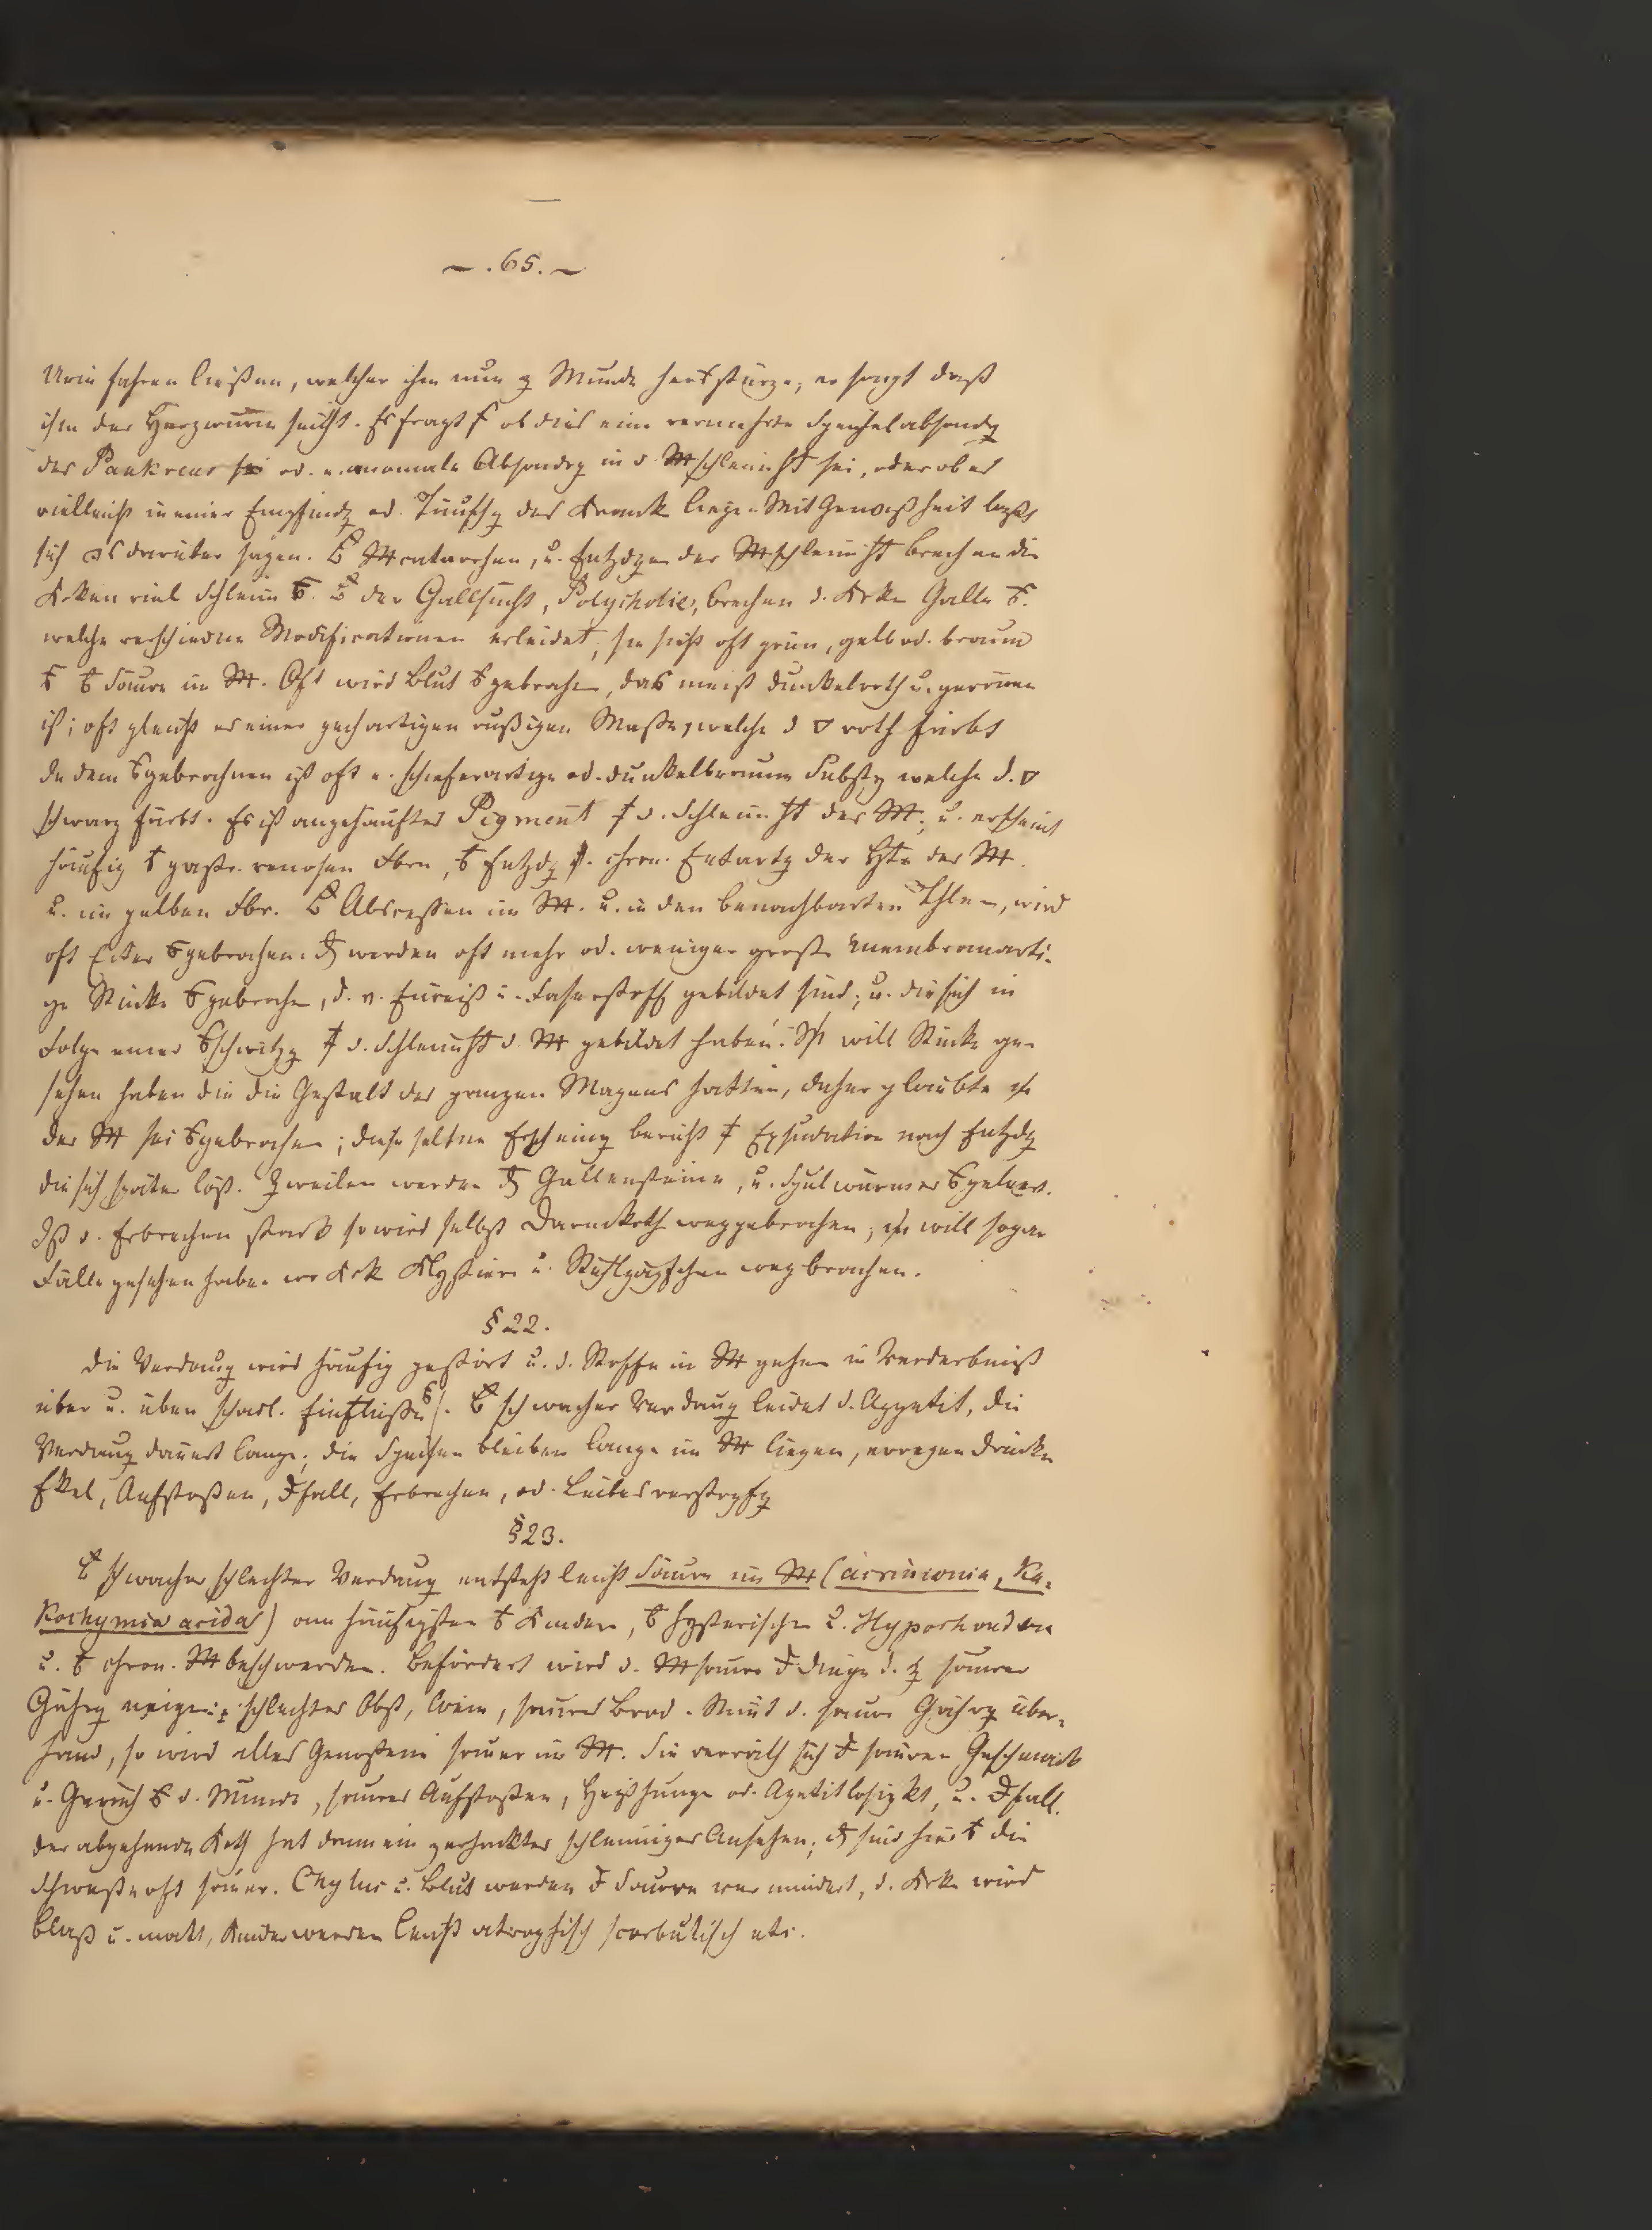 — . 65. —
Urin fahren ließen, welcher ihm nun z Munde herausstürze; er sagt daß
ihm der Herzwurm seicht. Es fragt s ob dies eine vermehrte Speichelabsondg
des Pankreas od. e. anomale Absondrg in d. Mschleimht sei, oder ob es
vielleicht in einer Empfindg od. Täuschg des Kranck liege. Mit Gewißheit läßt
sich darüber sagen. Mcatarrhen, u. Entzdgen der Mschleimht brechen die
Krken viel Schleim. der Gallsucht, Polycholie, brechen d. Krke Galle
welche verschiedne Modificationen erleidet, sie sieht oft grün, gelb od. braun
Säure im M. Oft wird Blut gebrochen, das meist dunkelroth u. geronnen
ist; oft gleicht es einer pechartigen rußigen Masse, welche d ▽ roth färbt
In dem gebrochnen ist oft e. schieferartige od. dunkelbraune Substz welche d. ▽
schwarz färbt. Es ist angehäuftes Pigment d. Schleimht des M. u. erscheint
häufig gastr. venosen Fbrn, Entzdg chron. Entartg der Hte des M.
u. im gelben Fbr. Abscessen im M. u. in den benachbarten Thlen, wird
oft Eiter gebrochen. werden oft mehr od. weniger große membranarti-
ge Stücke gebrochen, d. v. Eiweiß u. Faserstoff gebildet sind; u. die sich in
Folge einer schwitzg d. Schleimht d. M gebildet haben. will Stücke ge-
sehen haben die die Gestalt des ganzen Magens hatten, daher glaubte
der M sei gebrochen; diese seltne Erscheing beruht Exsudation nach Entzdg
die sich später löst. Zweilen werden Gallensteine, u. Spulwürmer
Ist d. Erbrechen stark so wird selbst Darmkoth weggebrochen; will sogar
Fälle gesehen haben wo Krk Klystiere u. Stuhlzäpfchen wegbrachen.
§ 22.
Die Verdaug wird häufig gestört u. d. Stoffe in M gehen in Verderbniß
über u. üben schädl. Einflüsse. schwacher Verdaug leidet d. Appetit, die
Verdaug dauert lange; die Speisen bleiben lange im M liegen, erregen Drücke
Ekel, Aufstoßen, Dfall, Erbrechen, od. Leibesverstopfg
§ 23.
schwacher schlechter Verdaug entsteht leicht Säure im M (acrimonia, Ka-
kochymia acida) am häufigsten Kindern, hysterischen u. Hypochondern
u. chron. Mbeschwerden. Befördert wird d. Msäure Dinge d. z saurer
Gährg neigen: schlechtes Obst, Wein, saures Brod. Nimt d. saure Gährg über-
hand, so wird alles Genoßene sauer im M. Sie verräth sich sauren Geschmack
u. Geruch d. Munde, saures Aufstoßen, Heißhunge od. Apetitlosigkt, u. Dfall.
der abgehende Koth hat dann ein gehacktes schleimiges Ansehen; sind hier die
Schweiße oft sauer. Chylus u. Blut werden Säure vermindert, d. Krke wird
blaß u. matt, Kinder werden leicht atrophisch scorbutisch etc.